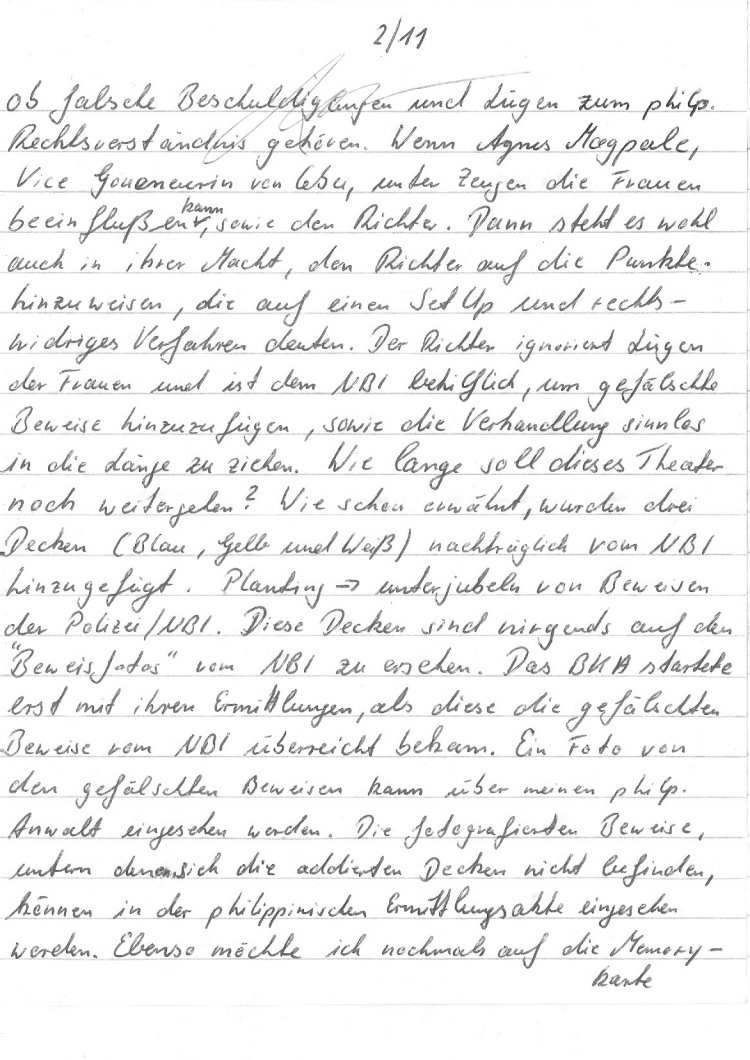 2/11
ob falsche Beschuldigungen und Lügen zum philp.
Rechtsverständnis gehören. Wenn Agnes Magpale,
Vice Goueneurin von Cebu, unter Zeugen die Frauen
beeinflußen kann, sowie den Richter. Dann steht es wohl
auch in ihrer Macht, den Richter auf die Punkte
hinzuweisen, die auf einen Set Up und rechts-
widriges Verfahren deuten. Der Richter ignoriert Lügen
der Frauen und ist dem NBI behilflich, um gefälschte
Beweise hinzuzufügen, sowie die Verhandlung sinnlos
in die Länge zu ziehen. Wie lange soll dieses Theater
noch weitergehen? Wie schon erwähnt, wurden drei
Decken (Blau, Gelb und Weiß) nachträglich vom NBI
hinzugefügt. Planting → unterjubeln von Beweisen
der Polizei/NBI. Diese Decken sind nirgends auf den
"Beweisfotos" vom NBI zu ersehen. Das BKA startete
erst mit ihren Ermittlungen, als diese die gefälschten
Beweise vom NBI überreicht bekam. Ein Foto von
den gefälschten Beweisen kann über meinen philp.
Anwalt eingesehen werden. Die fotografierten Beweise,
untern denen sich die addierten Decken nicht befinden,
können in der philippinischen Ermittlungsakte eingesehen
werden. Ebenso möchte ich nochmals auf die Memory-
karte